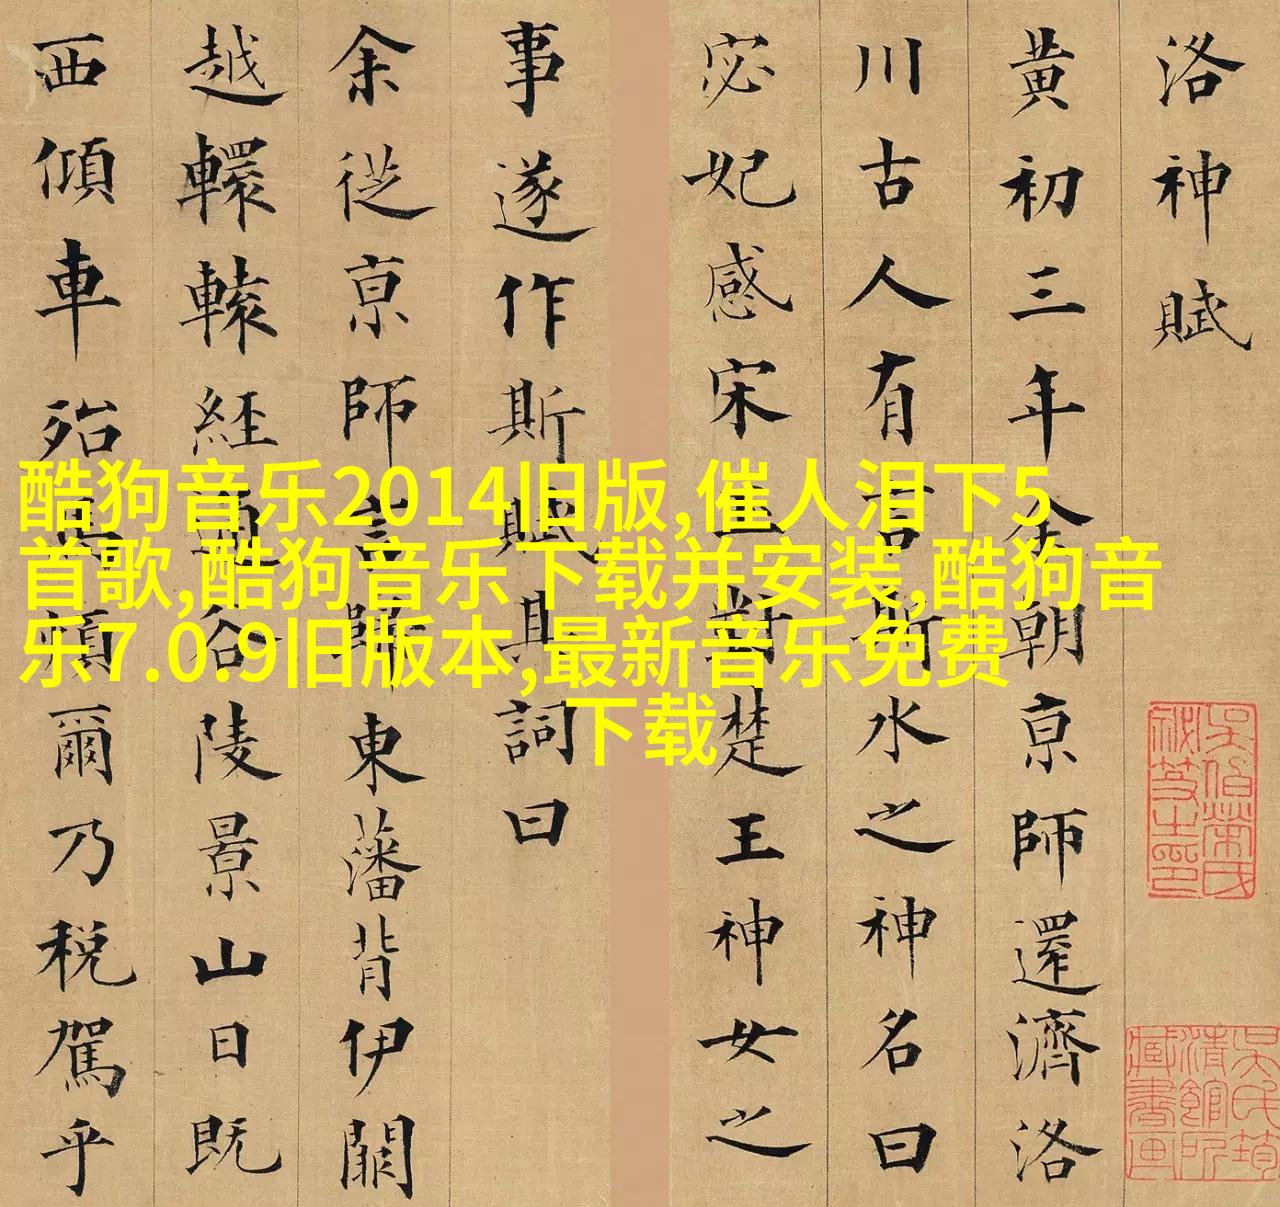 洛神賦
黄初三年余朝亰師還濟洛
川古人有言斯水之神名曰
宓妃感宋玉對楚王神女之
事遂作斯賦其詞曰
余從亰師言歸東藩背伊闕
越轘轅經通谷陵景山日既
西傾車殆馬煩爾乃稅駕乎
吳氏筠
清館所
藏書画
酷狗音乐2014旧版,催人泪下5
首歌,酷狗音乐下载并安装,酷狗音
乐7.0.9旧版本,最新音乐免费
下载